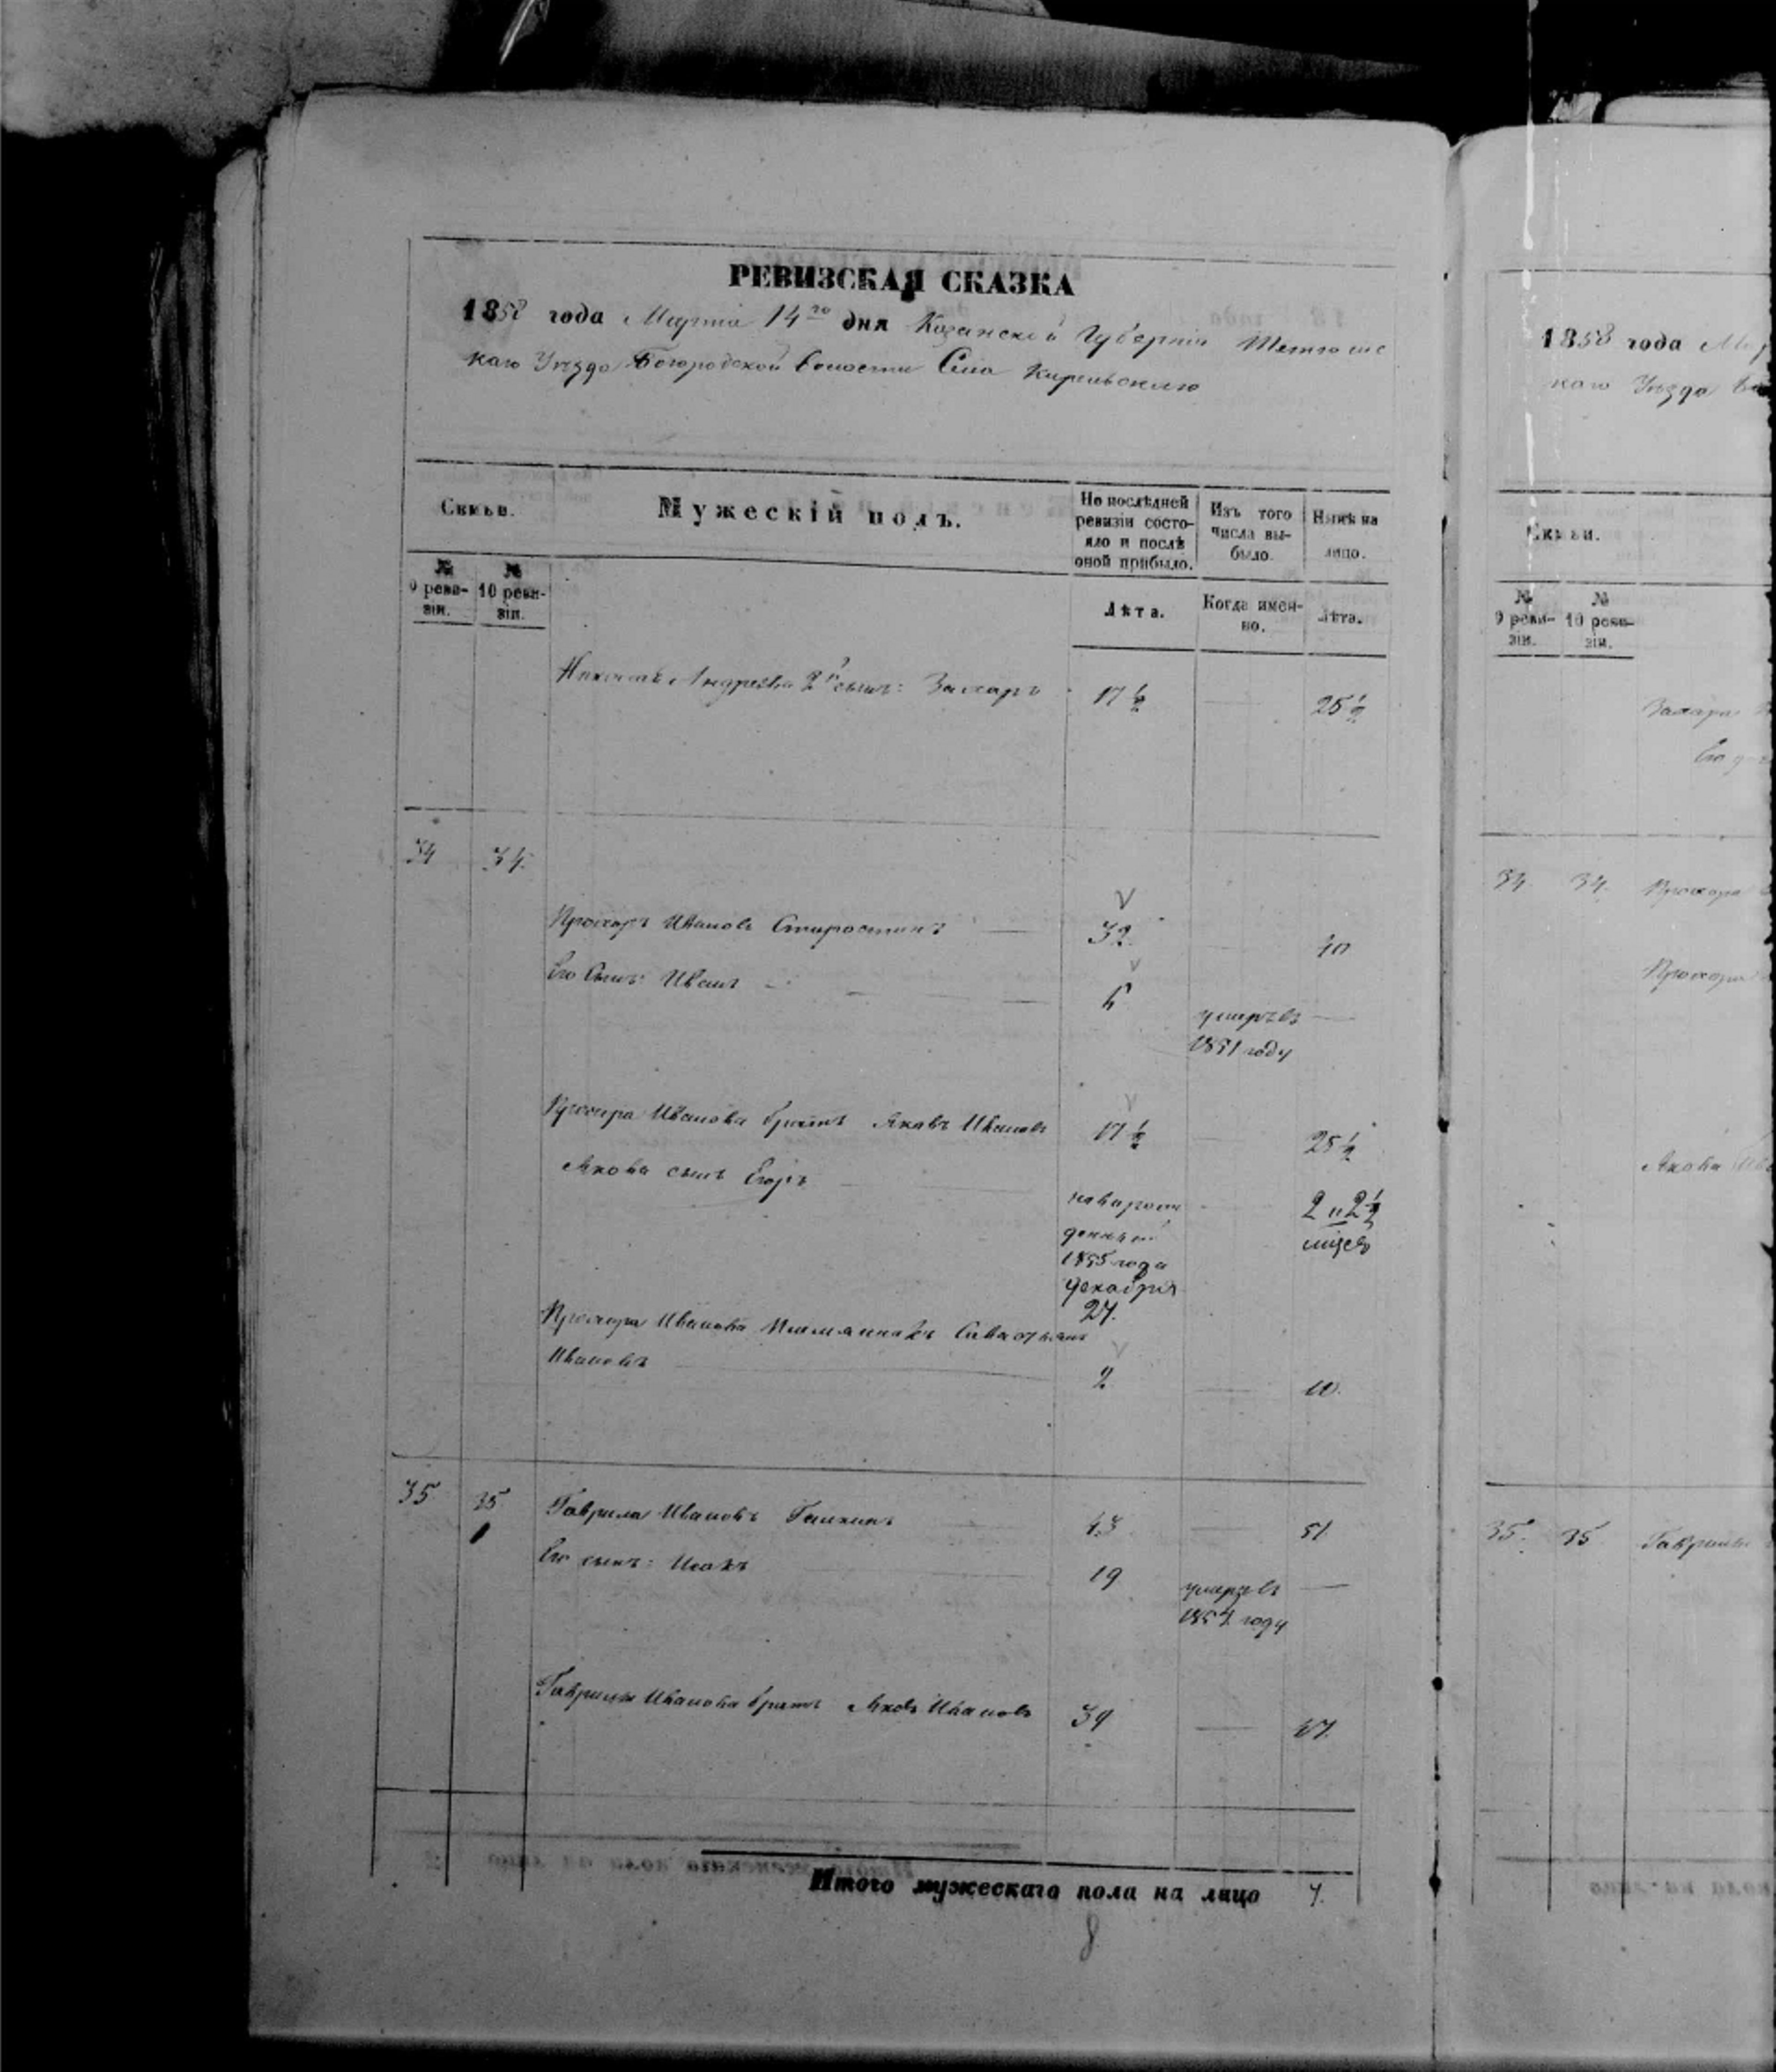 РЕВИЗСКАЯ СКАЗКА
1858 года Марта 14го дня Казанской Губернии Тетюшс
каго Уезда Богородской волости Села Кирельскаго
Семьи.
Мужескій полъ.
По послѣдней ревизіи состояло и послѣ оной прибыло.
Изъ того числа выбыло.
Нынѣ на лицо.
№ 9 ревизіи.
№ 10 ревизіи.
Лѣта.
Когда именно.
Лѣта.
Андреева 2й сынъ: Захаръ 17½ — 25½
34 34.
Прохоръ Ивановъ Старостинъ — 32. — 40
Его Сынъ: Иванъ — умеръ въ —
1851 году
Прохора Иванова братъ Яковъ Ивановъ 17½ — 25½
Якова сынъ Егоръ — новорож — 2 и 2½
денный мѣсяц
1855 года
декабря
27.
Прохора Иванова Племянникъ Савастьянъ
Ивановъ — 2 — 10.
35. 35 Гаврила Ивановъ Галкинъ — 43 — 51
Его сынъ: Исакъ — 19 умеръ въ —
году
Гаврилы Иванова братъ Яковъ Ивановъ 39 — 47.
Итого мужескаго пола на лицо 7.
8
1858 года
каго Уезда
Семьи.
№ 9 ревизіи.
№ 10 ревизіи.
Захара
Его
34. 34. Прохора
Прохора
Якова
35. 35 Гаврилы